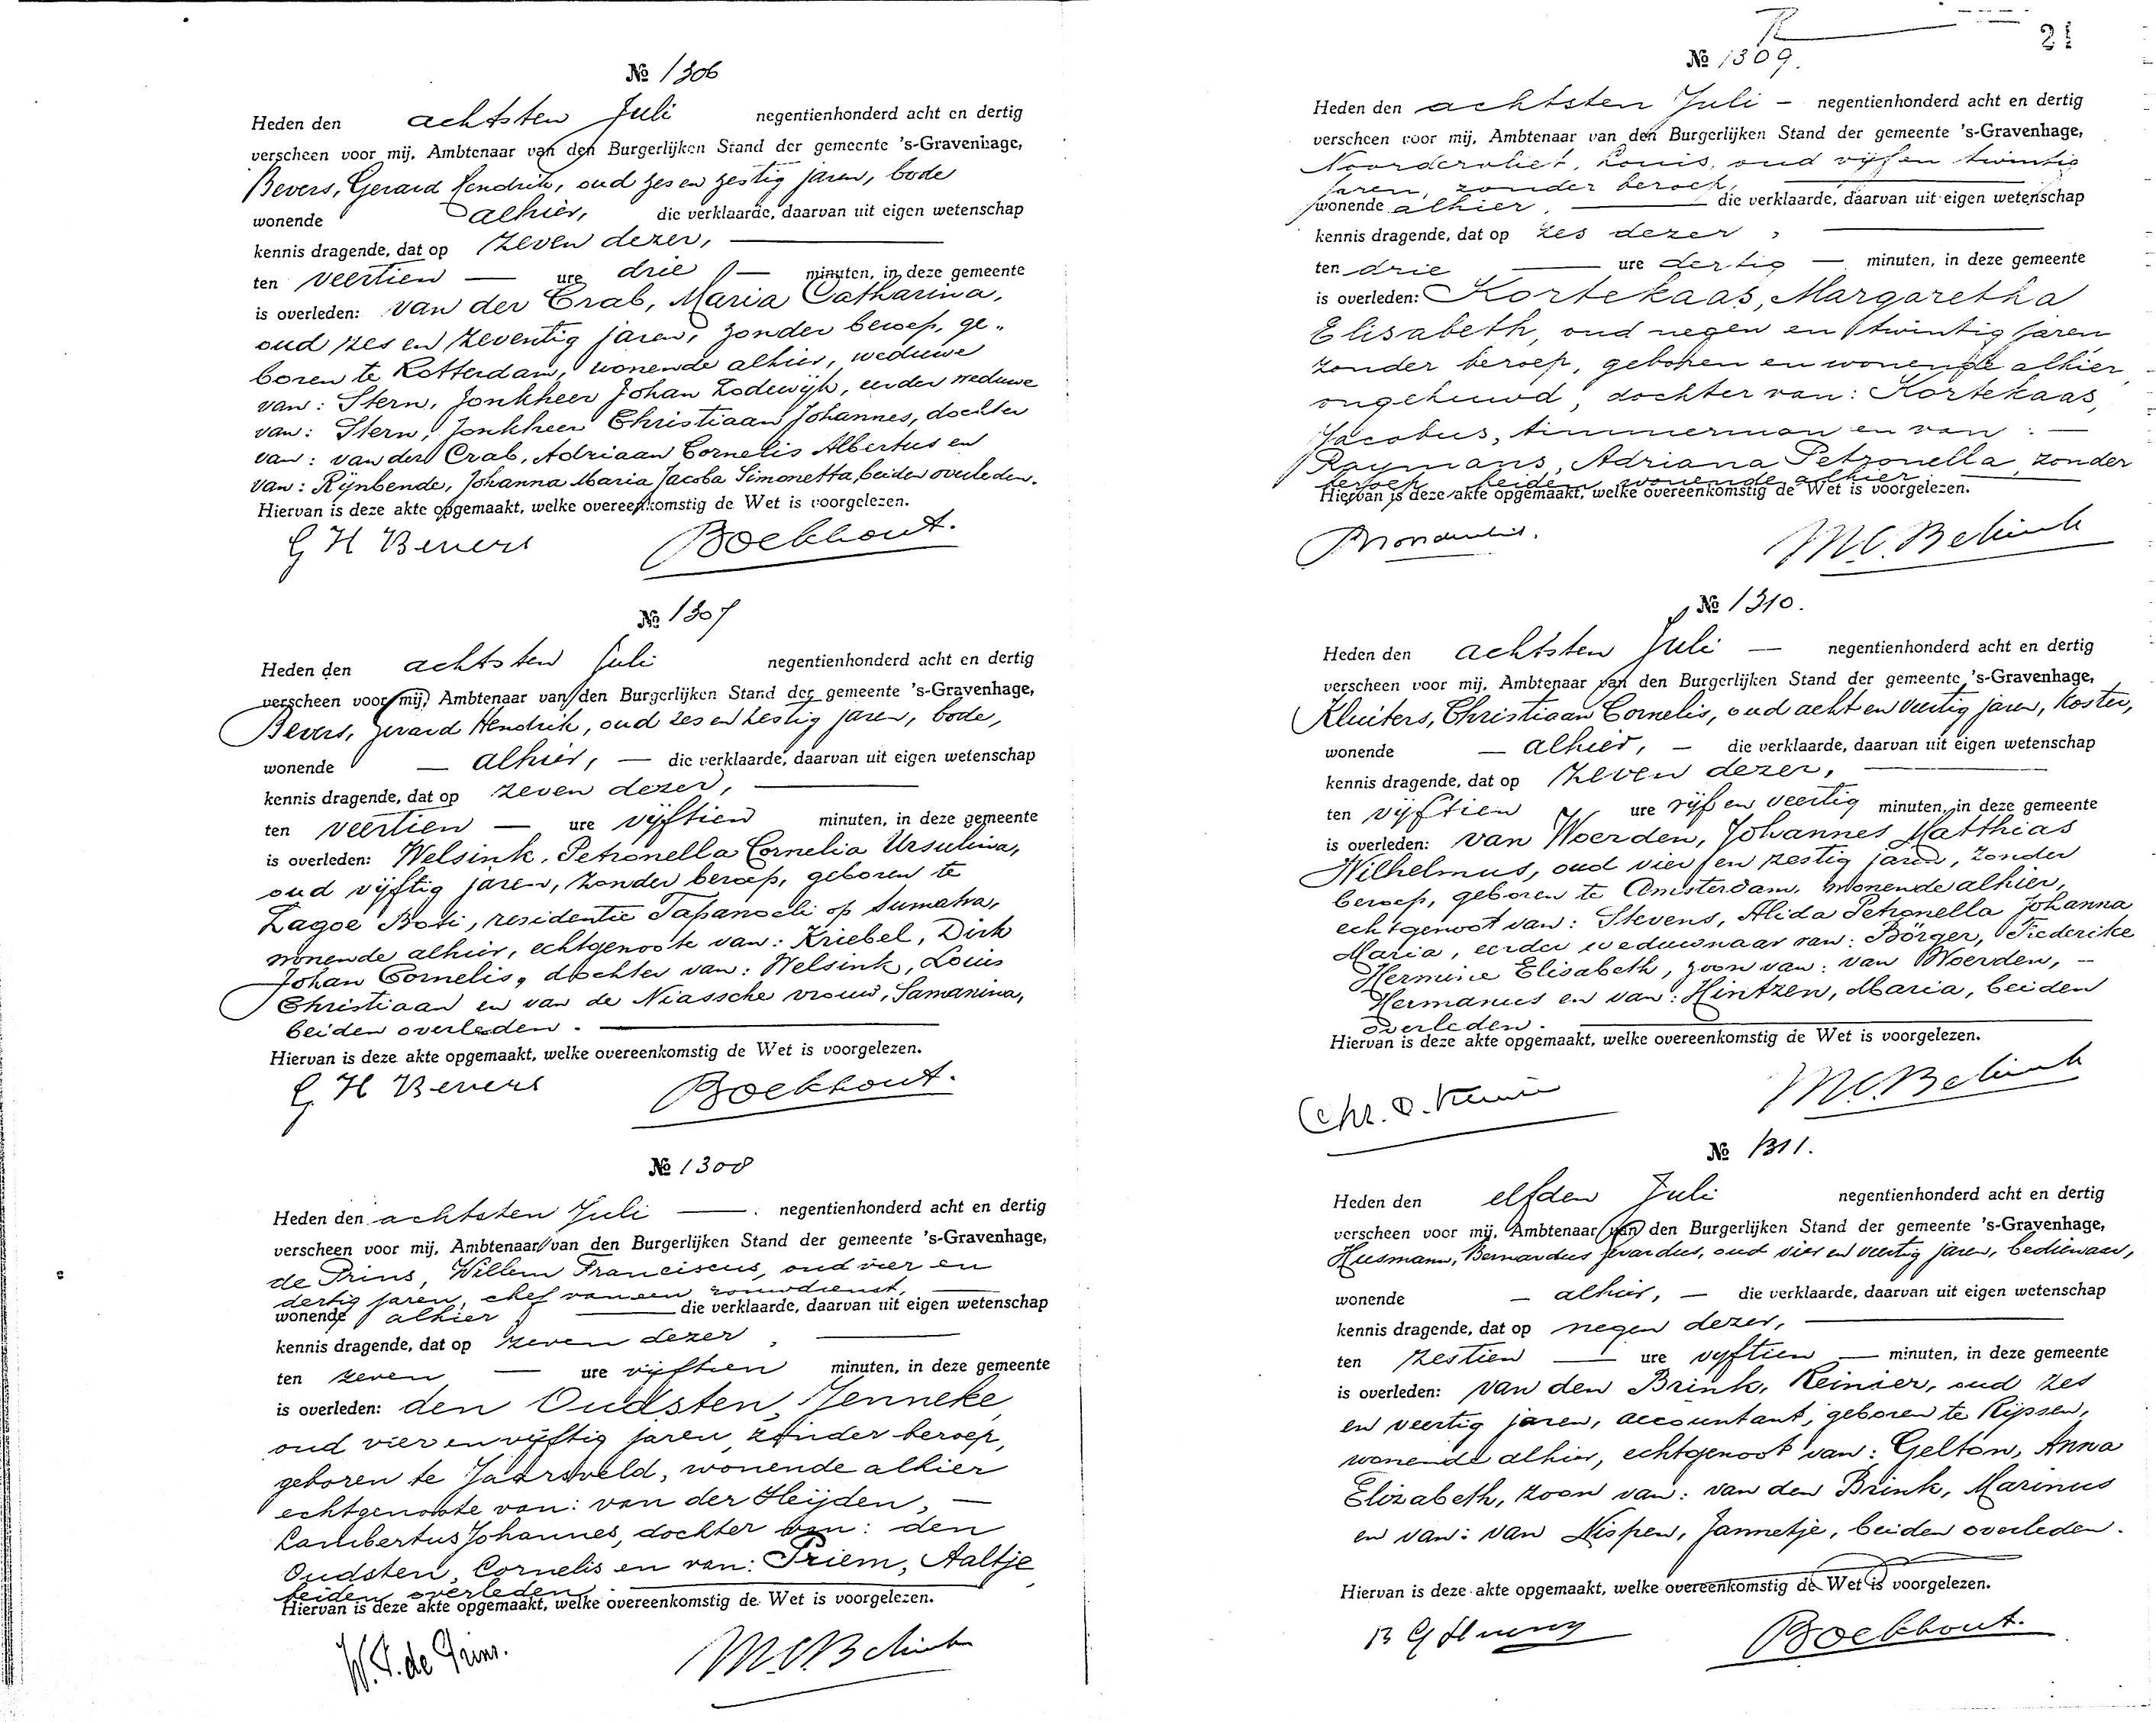 № 1306
Heden den achtsten Juli negentienhonderd acht en dertig
verscheen voor mij, Ambtenaar van den Burgerlijken Stand der gemeente 's-Gravenhage,
Bevers, Gerard Hendrik, oud zes en zestig jaren, bode
wonende alhier, die verklaarde, daarvan uit eigen wetenschap
kennis dragende, dat op zeven dezer,
ten veertien — ure drie — minuten, in deze gemeente
is overleden: van der Crab, Maria Catharina,
oud zes en zeventig jaren, zonder beroep, ge-
boren te Rotterdam, wonende alhier, weduwe
van: Stern, Jonkheer Johan Lodewijk, eerder weduwe
van: Stern, Jonkheer Christiaan Johannes, dochter
van: van der Crab, Adriaan Cornelis Albertus en
van: Rijnbende, Johanna Maria Jacoba Simonetta, beiden overleden.
Hiervan is deze akte opgemaakt, welke overeenkomstig de Wet is voorgelezen.
G H Bevers Boekhout.
№ 1307
Heden den achtsten Juli negentienhonderd acht en dertig
verscheen voor mij, Ambtenaar van den Burgerlijken Stand der gemeente 's-Gravenhage,
Bevers, Gerard Hendrik, oud zes en zestig jaren, bode,
wonende — alhier, — die verklaarde, daarvan uit eigen wetenschap
kennis dragende, dat op zeven dezer,
ten veertien — ure vijftien minuten, in deze gemeente
is overleden: Welsink, Petronella Cornelia Ursulina,
oud vijftig jaren, zonder beroep, geboren te
Lagoe Boti, residentie Tapanoeli op Sumatra,
wonende alhier, echtgenoote van: Kriebel, Dirk
Johan Cornelis, dochter van: Welsink, Louis
Christiaan en van de Niassche vrouw, Samanina,
beiden overleden.
Hiervan is deze akte opgemaakt, welke overeenkomstig de Wet is voorgelezen.
G H Bevers Boekhout.
№ 1308
Heden den achtsten Juli — negentienhonderd acht en dertig
verscheen voor mij, Ambtenaar van den Burgerlijken Stand der gemeente 's-Gravenhage,
de Prins, Willem Franciscus, oud vier en
dertig jaren, chef van een rouwdienst,
wonende alhier, die verklaarde, daarvan uit eigen wetenschap
kennis dragende, dat op zeven dezer,
ten zeven — ure vijftien minuten, in deze gemeente
is overleden: den Oudsten, Jenneke,
oud vier en vijftig jaren, zonder beroep,
geboren te Jaarsveld, wonende alhier
echtgenoote van: van der Heijden, —
Lambertus Johannes, dochter van: den
Oudsten, Cornelis en van: Priem, Aaltje,
beiden overleden.
Hiervan is deze akte opgemaakt, welke overeenkomstig de Wet is voorgelezen.
W. F. de Prins.
21
№ 1309.
Heden den achtsten Juli — negentienhonderd acht en dertig
verscheen voor mij, Ambtenaar van den Burgerlijken Stand der gemeente 's-Gravenhage,
Noordervliet, Louis, oud vijf en twintig
jaren, zonder beroep,
wonende alhier, die verklaarde, daarvan uit eigen wetenschap
kennis dragende, dat op zes dezer,
ten drie — ure dertig — minuten, in deze gemeente
is overleden: Kortekaas, Margaretha
Elisabeth, oud negen en twintig jaren,
zonder beroep, geboren en wonende alhier,
ongehuwd, dochter van: Kortekaas,
Jacobus, timmerman en van: —
Raymans, Adriana Petronella, zonder
beroep, beiden wonende alhier.
Hiervan is deze akte opgemaakt, welke overeenkomstig de Wet is voorgelezen.
№ 1310.
Heden den achtsten Juli — negentienhonderd acht en dertig
verscheen voor mij, Ambtenaar van den Burgerlijken Stand der gemeente 's-Gravenhage,
Kluiters, Christiaan Cornelis, oud acht en veertig jaren, koster,
wonende — alhier, — die verklaarde, daarvan uit eigen wetenschap
kennis dragende, dat op zeven dezer,
ten vijftien ure vijf en veertig minuten, in deze gemeente
is overleden: van Woerden, Johannes Matthias
Wilhelmus, oud vier en zestig jaren, zonder
beroep, geboren te Amsterdam, wonende alhier,
echtgenoot van: Stevens, Alida Petronella Johanna
Maria, eerder weduwnaar van: Börger, Fiederike
Hermine Elisabeth, zoon van: van Woerden, —
Hermanus en van: Hintzen, Maria, beiden
overleden.
Hiervan is deze akte opgemaakt, welke overeenkomstig de Wet is voorgelezen.
№ 1311.
Heden den elfden Juli negentienhonderd acht en dertig
verscheen voor mij, Ambtenaar van den Burgerlijken Stand der gemeente 's-Gravenhage,
Husmann, Bernardus Gerardus, oud vier en veertig jaren, bedienaar,
wonende — alhier, — die verklaarde, daarvan uit eigen wetenschap
kennis dragende, dat op negen dezer,
ten zestien — ure vijftien — minuten, in deze gemeente
is overleden: van den Brink, Reinier, oud zes
en veertig jaren, accountant, geboren te Rijssen,
wonende alhier, echtgenoot van: Gelton, Anna
Elizabeth, zoon van: van den Brink, Marinus
en van: van Nispen, Jannetje, beiden overleden.
Hiervan is deze akte opgemaakt, welke overeenkomstig de Wet is voorgelezen.
Boekhout.